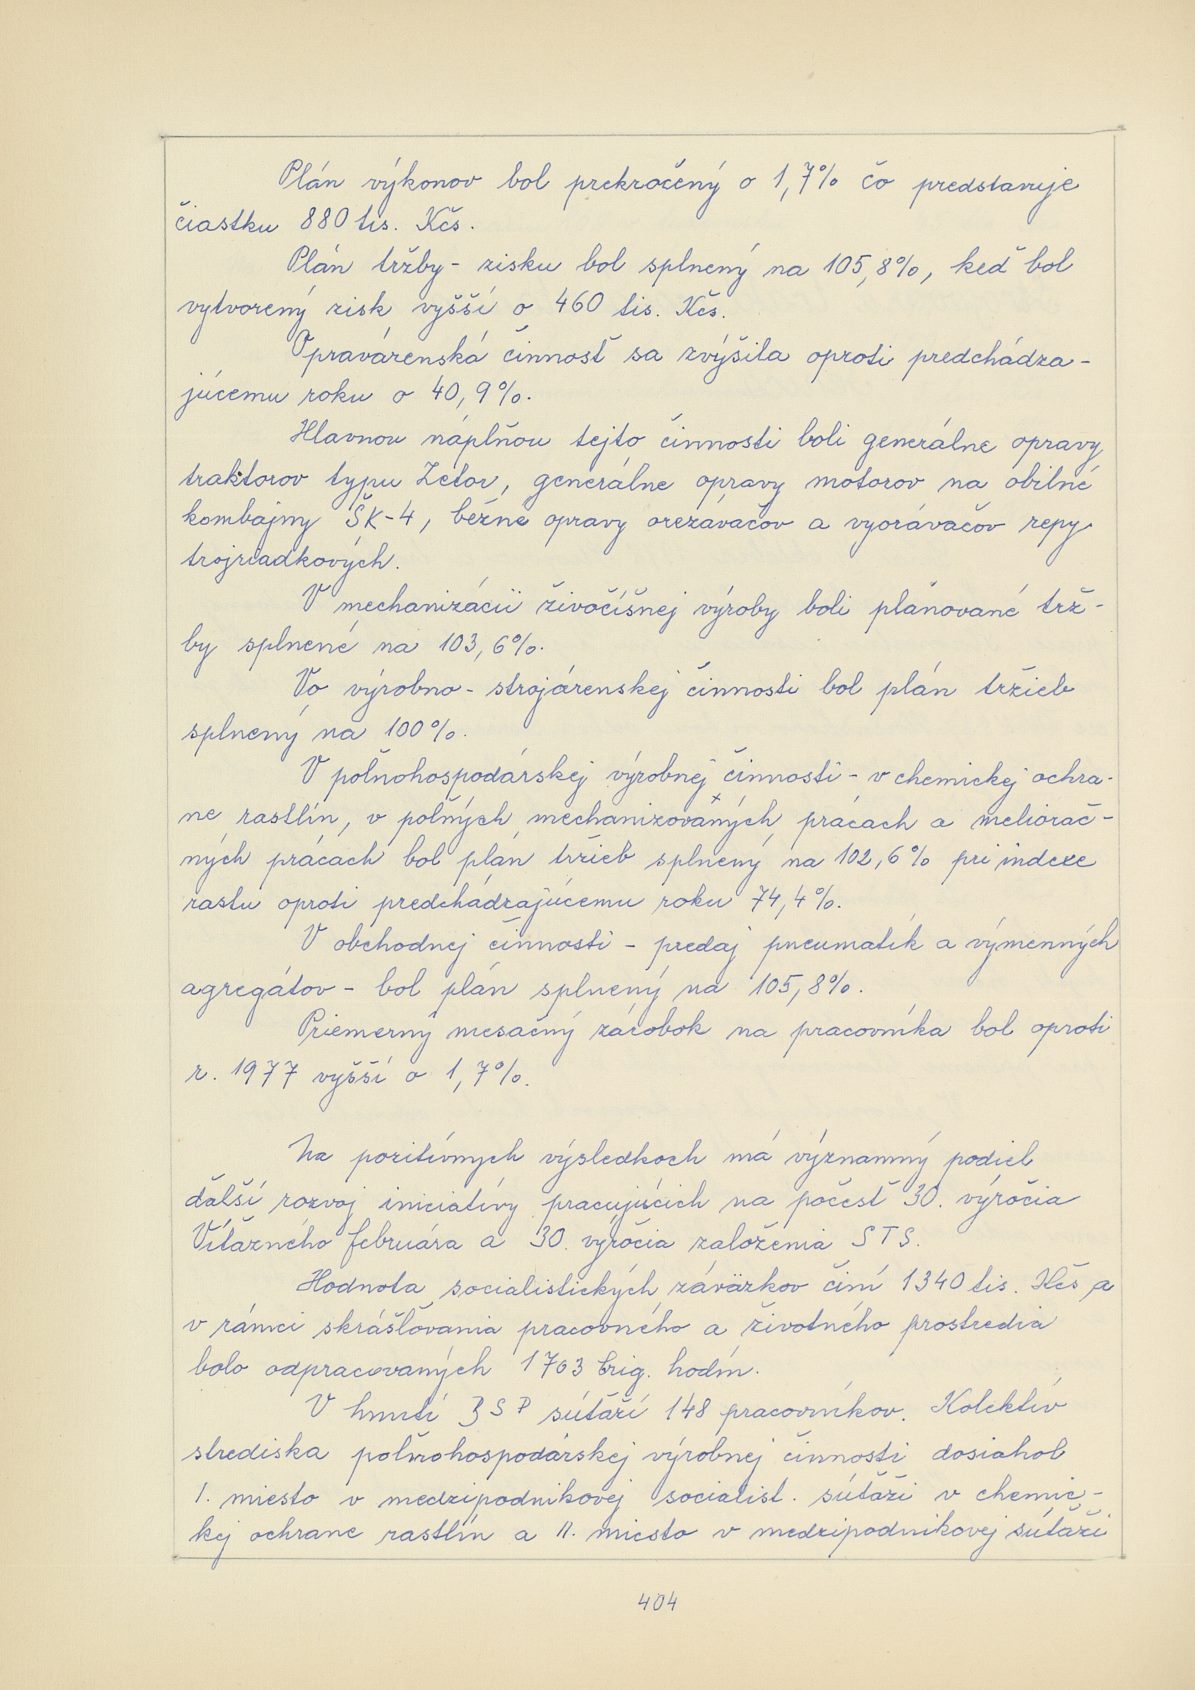 Plán výkonov bol prekročený o 1,7% čo predstavuje
čiastku 880 tis. Kčs.
Plán tržby - zisku bol splnený na 105,8%, keď bol
vytvorený zisk vyšší o 460 tis. Kčs.
Opravárenská činnosť sa zvýšila oproti predchádza-
júcemu roku o 40,9%.
Hlavnou náplňou tejto činnosti boli generálne opravy
traktorov typu Zetor, generálne opravy motorov na obilné
kombajny ŠK-4, bežné opravy orezávačov a vyorávačov repy
trojriadkových.
V mechanizácii živočíšnej výroby boli plánované trž-
by splnené na 103,6%.
Vo výrobno - strojárenskej činnosti bol plán tržieb
splnený na 100%.
V poľnohospodárskej výrobnej činnosti - v chemickej ochra-
ne rastlín, v poľných mechanizovaných prácach a meliorač-
ných prácach bol plán tržieb splnený na 102,6% pri indexe
rastu oproti predchádzajúcemu roku 74,4%.
V obchodnej činnosti - predaj pneumatík a výmenných
agregátov - bol plán splnený na 105,8%.
Priemerný mesačný zárobok na pracovníka bol oproti
r. 1977 vyšší o 1,7%.
Na pozitívnych výsledkoch má významný podiel
ďalší rozvoj iniciatívy pracujúcich na počesť 30. výročia
Víťazného februára a 30. výročia založenia STS.
Hodnota socialistických záväzkov činí 1340 tis. Kčs a
v rámci skrášľovania pracovného a životného prostredia
bolo odpracovaných 1703 brig. hodín.
V hnutí BSP súťaží 148 pracovníkov. Kolektív
strediska poľnohospodárskej výrobnej činnosti dosiahol
I. miesto v medzipodnikovej socialist. súťaži v chemic-
kej ochrane rastlín a II. miesto v medzipodnikovej súťaži
404